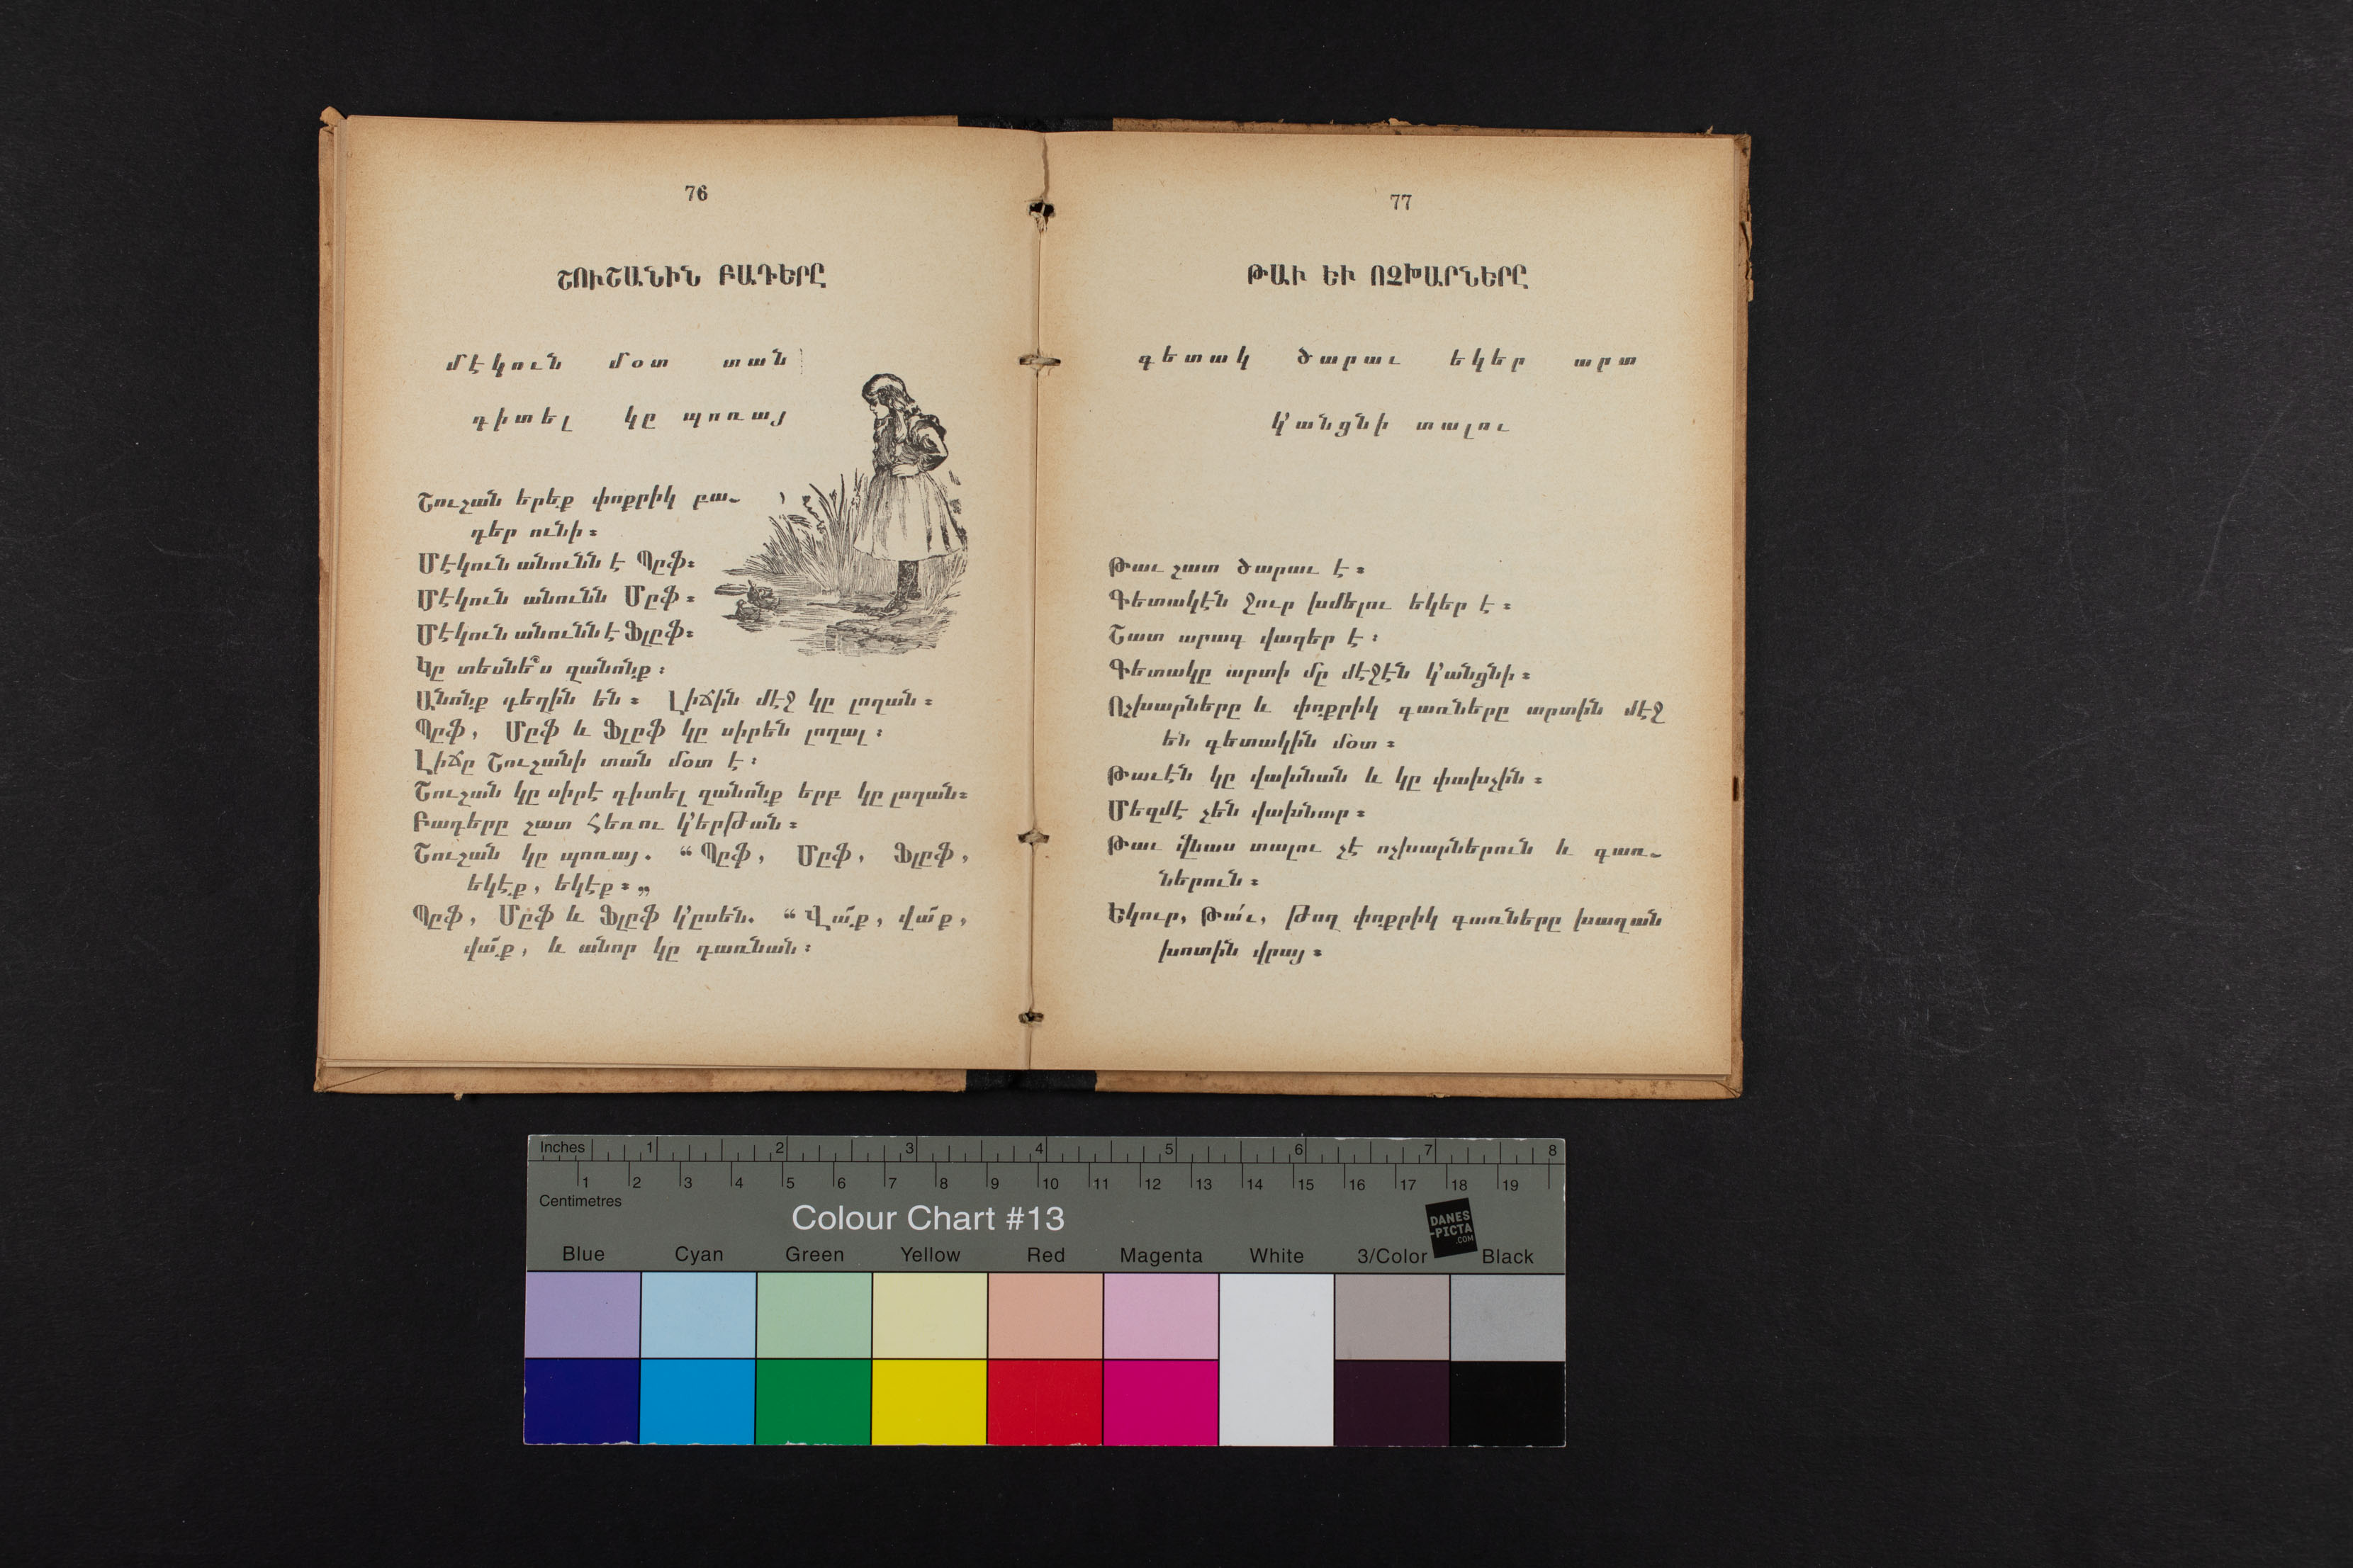 76
ՇՈՒՇԱՆԻՆ ԲԱԴԵՐԸ
մէկուն մօտ տան
դիտել կը պոռայ
Շուշան երեք փոքրիկ բա-
դեր ունի։
Մէկուն անունն է Պըֆ։
Մէկուն անունն Մըֆ։
Մէկուն անունն է Ֆլըֆ։
Կը տեսնե՞ս զանոնք։
Անոնք դեղին են։ Լիճին մէջ կը լողան։
Պըֆ, Մըֆ և Ֆլըֆ կը սիրեն լողալ։
Լիճը Շուշանի տան մօտ է։
Շուշան կը սիրէ դիտել զանոնք երբ կը լողան։
Բադերը շատ հեռու կ՚երթան։
Շուշան կը պոռայ. “Պըֆ, Մըֆ, Ֆլըֆ,
եկէք, եկէք։„
Պըֆ, Մըֆ և Ֆլըֆ կ՚ըսեն. “Վա՜ք, վա՜ք,
վա՜ք, և անոր կը դառնան։
77
ԹԱՒ ԵՒ ՈՉԽԱՐՆԵՐԸ
գետակ ծարաւ եկեր արտ
կ՚անցնի տալու
Թաւ շատ ծարաւ է։
Գետակէն ջուր խմելու եկեր է։
Շատ արագ վազեր է։
Գետակը արտի մը մէջէն կ՚անցնի։
Ոչխարները և փոքրիկ գառները արտին մէջ
են գետակին մօտ։
Թաւէն կը վախնան և կը փախչին։
Մեզմէ չեն վախնար։
Թաւ վնաս տալու չէ ոչխարներուն և գառ-
ներուն։
Եկուր, Թա՛ւ, թող փոքրիկ գառները խաղան
խոտին վրայ։
Inches 1 2 3 4 5 6 7 8
1 2 3 4 5 6 7 8 9 10 11 12 13 14 15 16 17 18 19
Centimetres
Colour Chart #13
DANES
-PICTA
.COM
Blue Cyan Green Yellow Red Magenta White 3/Color Black